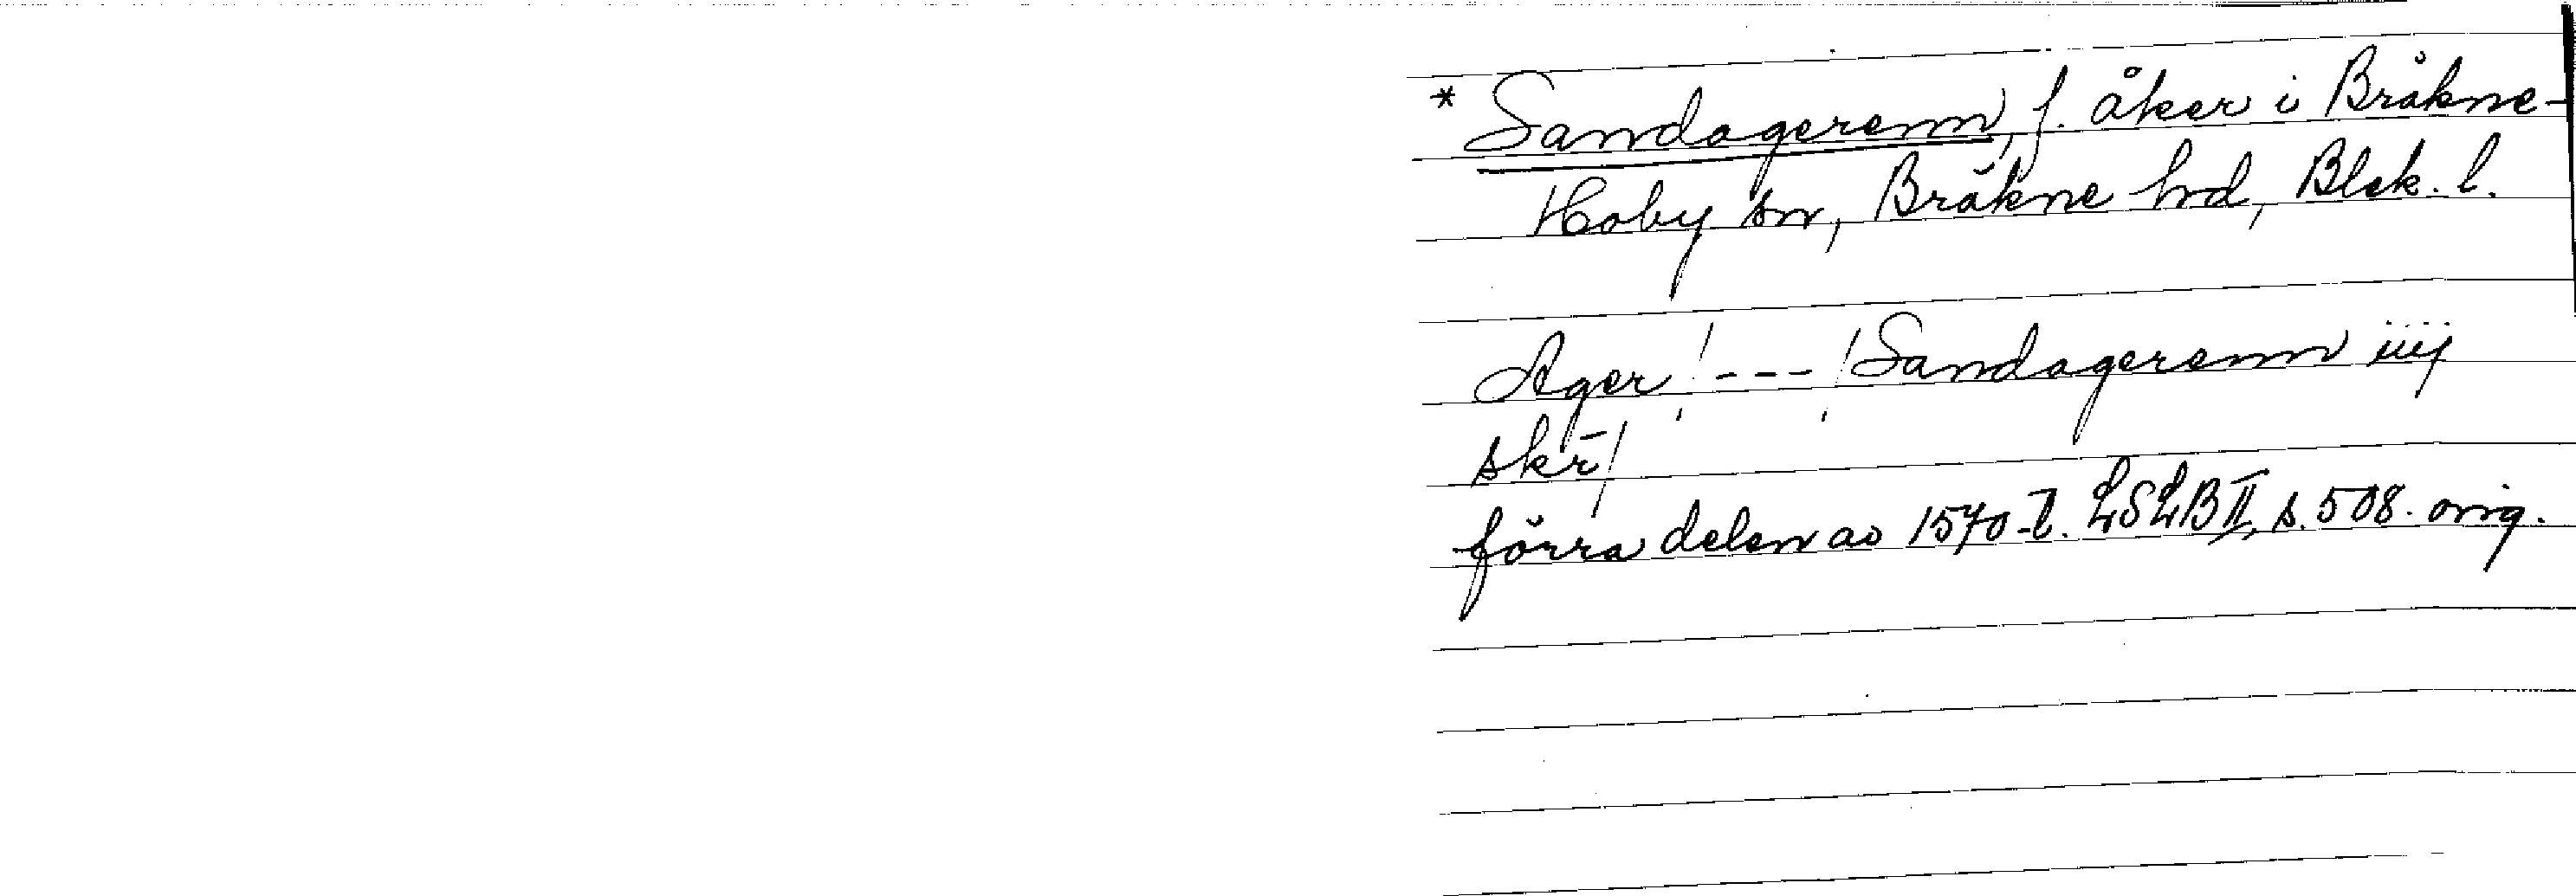 * Sandagerenn, f. åker i Bräkne-
Hoby sn, Bräkne hd, Blek. l.
Ager /---/ Sandagerenn iiij
skr̄/
förra delen av 1570-t. LSLB II, s. 508. orig.